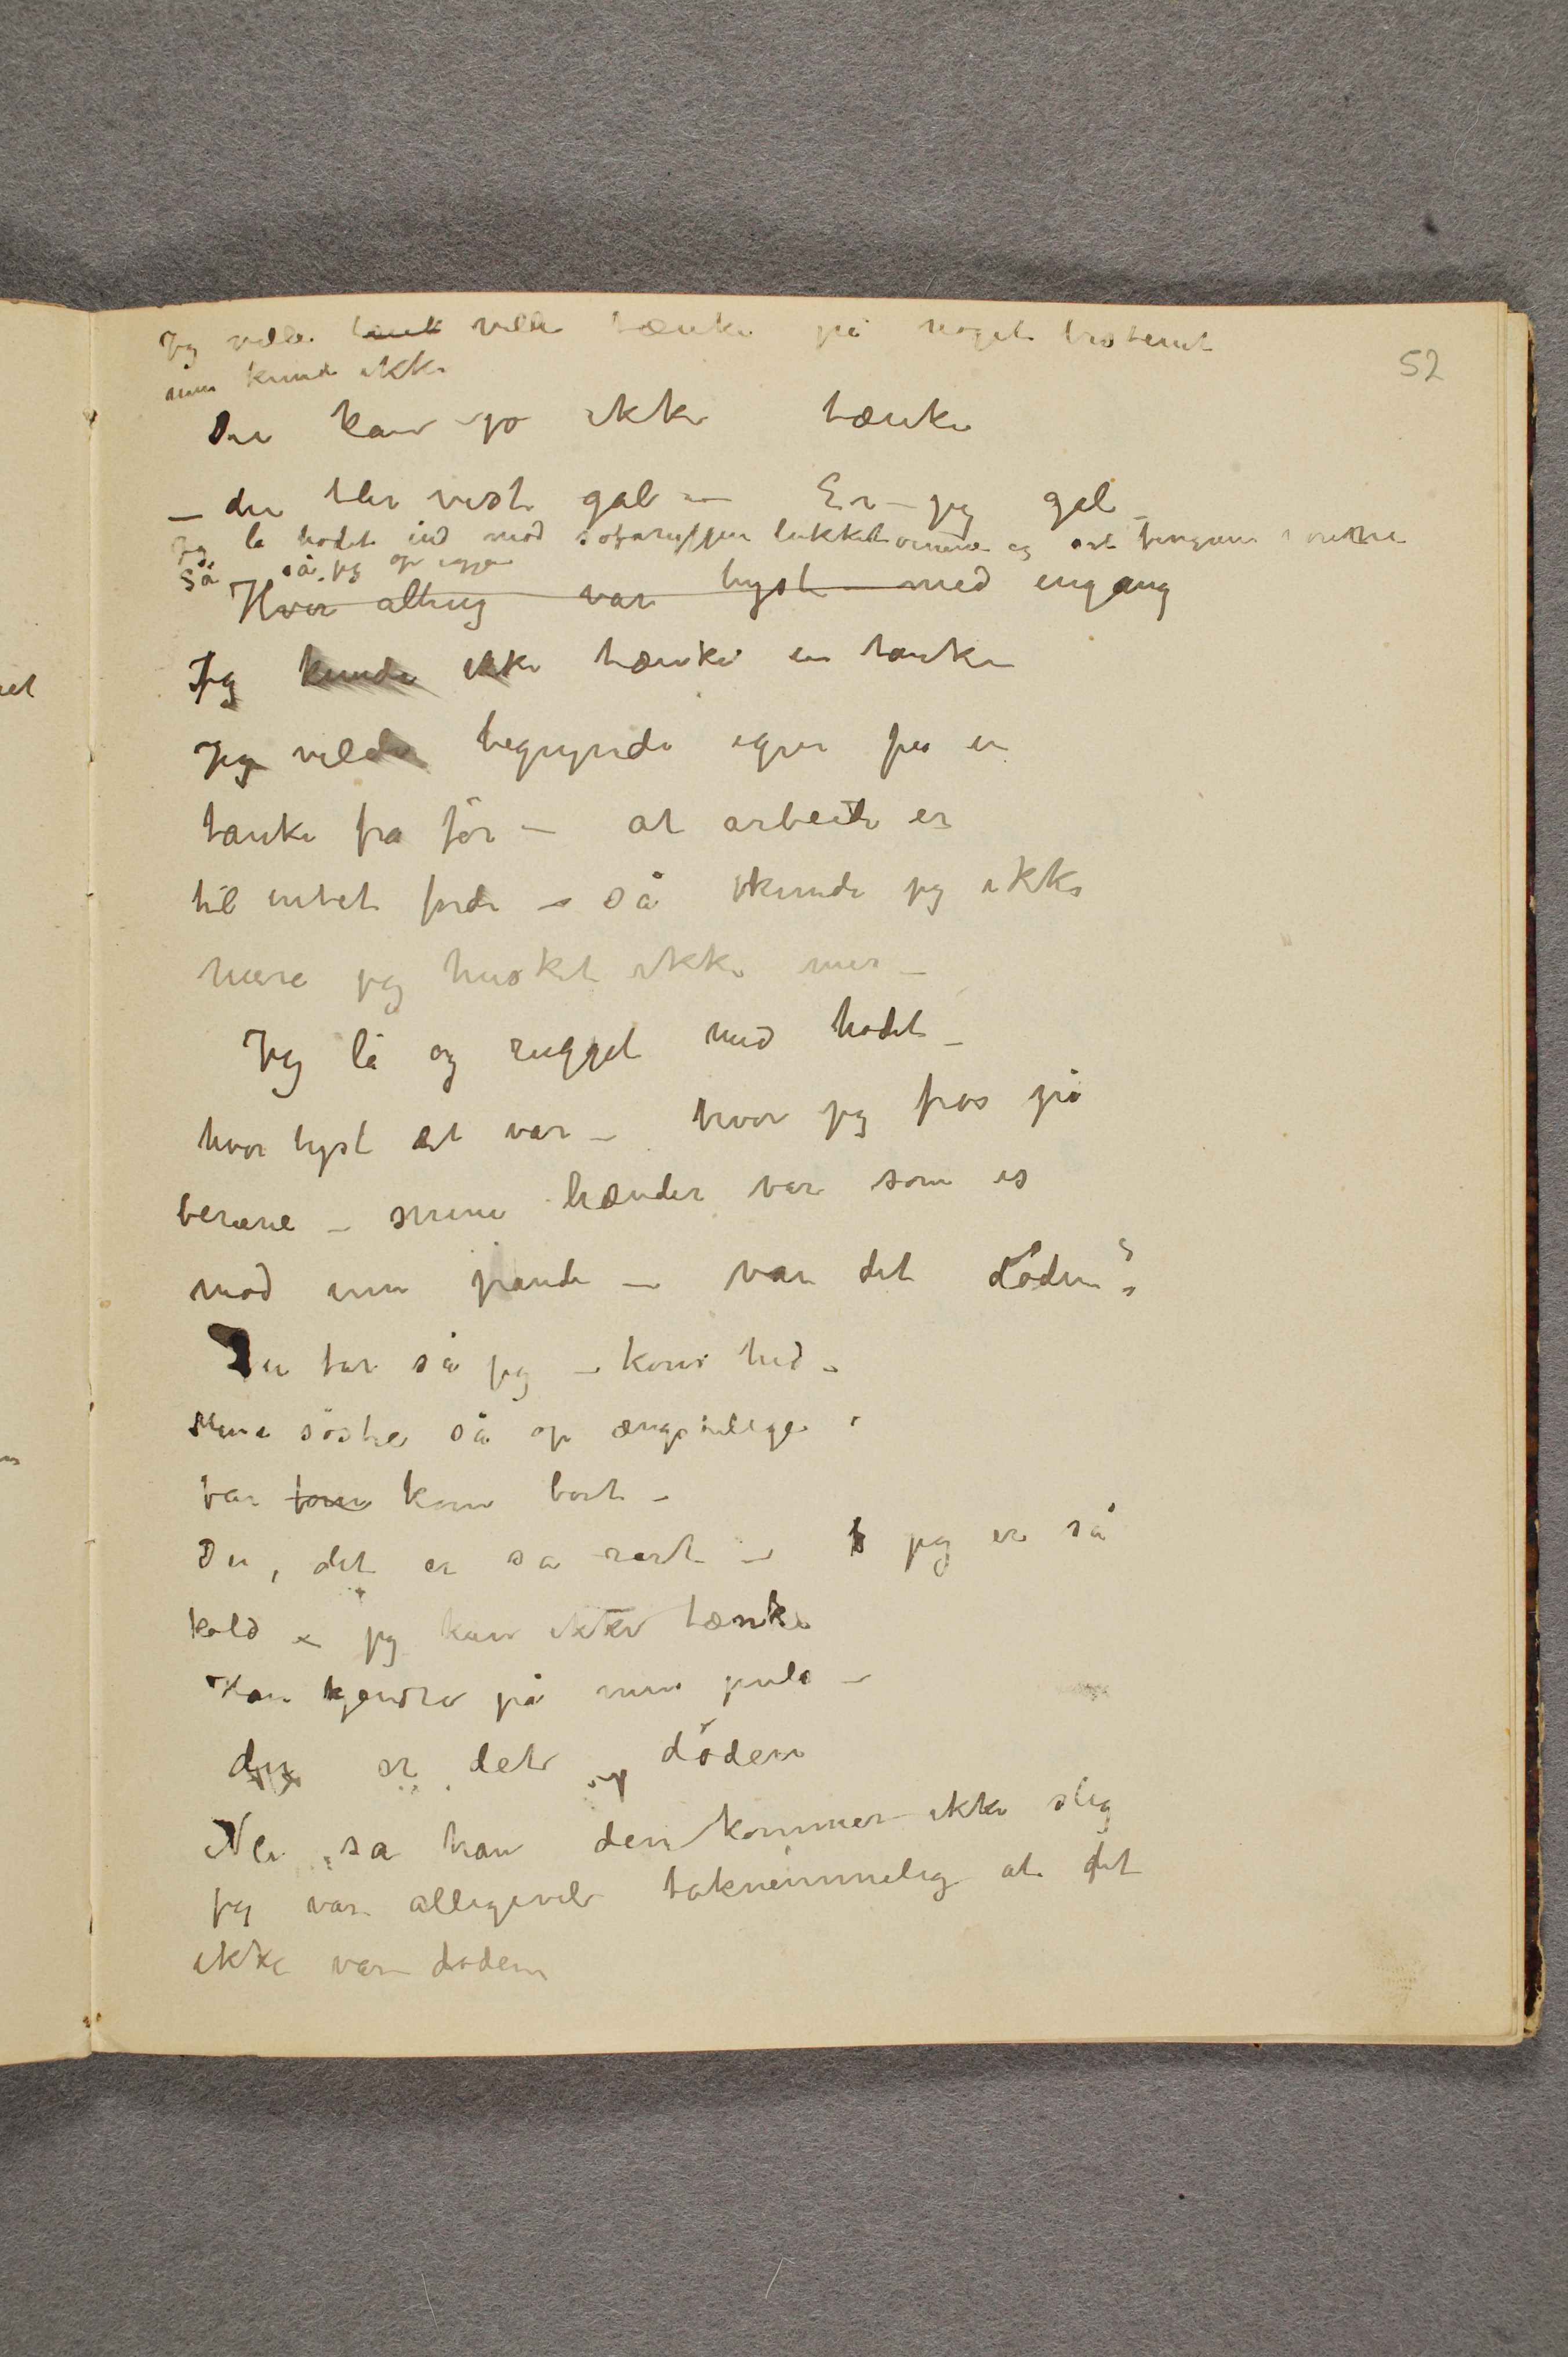 52
Jeg vilde tænk vilde tænke på noget bestemt
men kunde ikke
Du kan jo ikke tænke
– du blir vist gal – Er jeg gal –
Jeg la hodet ind mod sofaryggen lukket øinene og fingrene i ørene
Så så jeg op igjen
Hvor alting var tyst med engang
Jeg kunde ikke tænke en tanke
Jeg vilde begynde igjen på en
tanke fra før – at arbeide er
til intet fordi – så kunde jeg ikke
mere jeg husket ikke mer –
Jeg lå og rugget med hodet –
hvor tyst det var – hvor jeg frøs på
benene – mine hænder var som is
mod min pande – var det døden?
Du far sa jeg – kom hid –
Mine søstre så op ængstelige
far kom bort –
Du, det er så rart – jeg er så
kold – jeg kan ikke tænke
Han kjendte på min puls –
du er det døden
Nei sa han den kommer ikke slig
Jeg var alligevel taknemmelig at det
ikke var døden